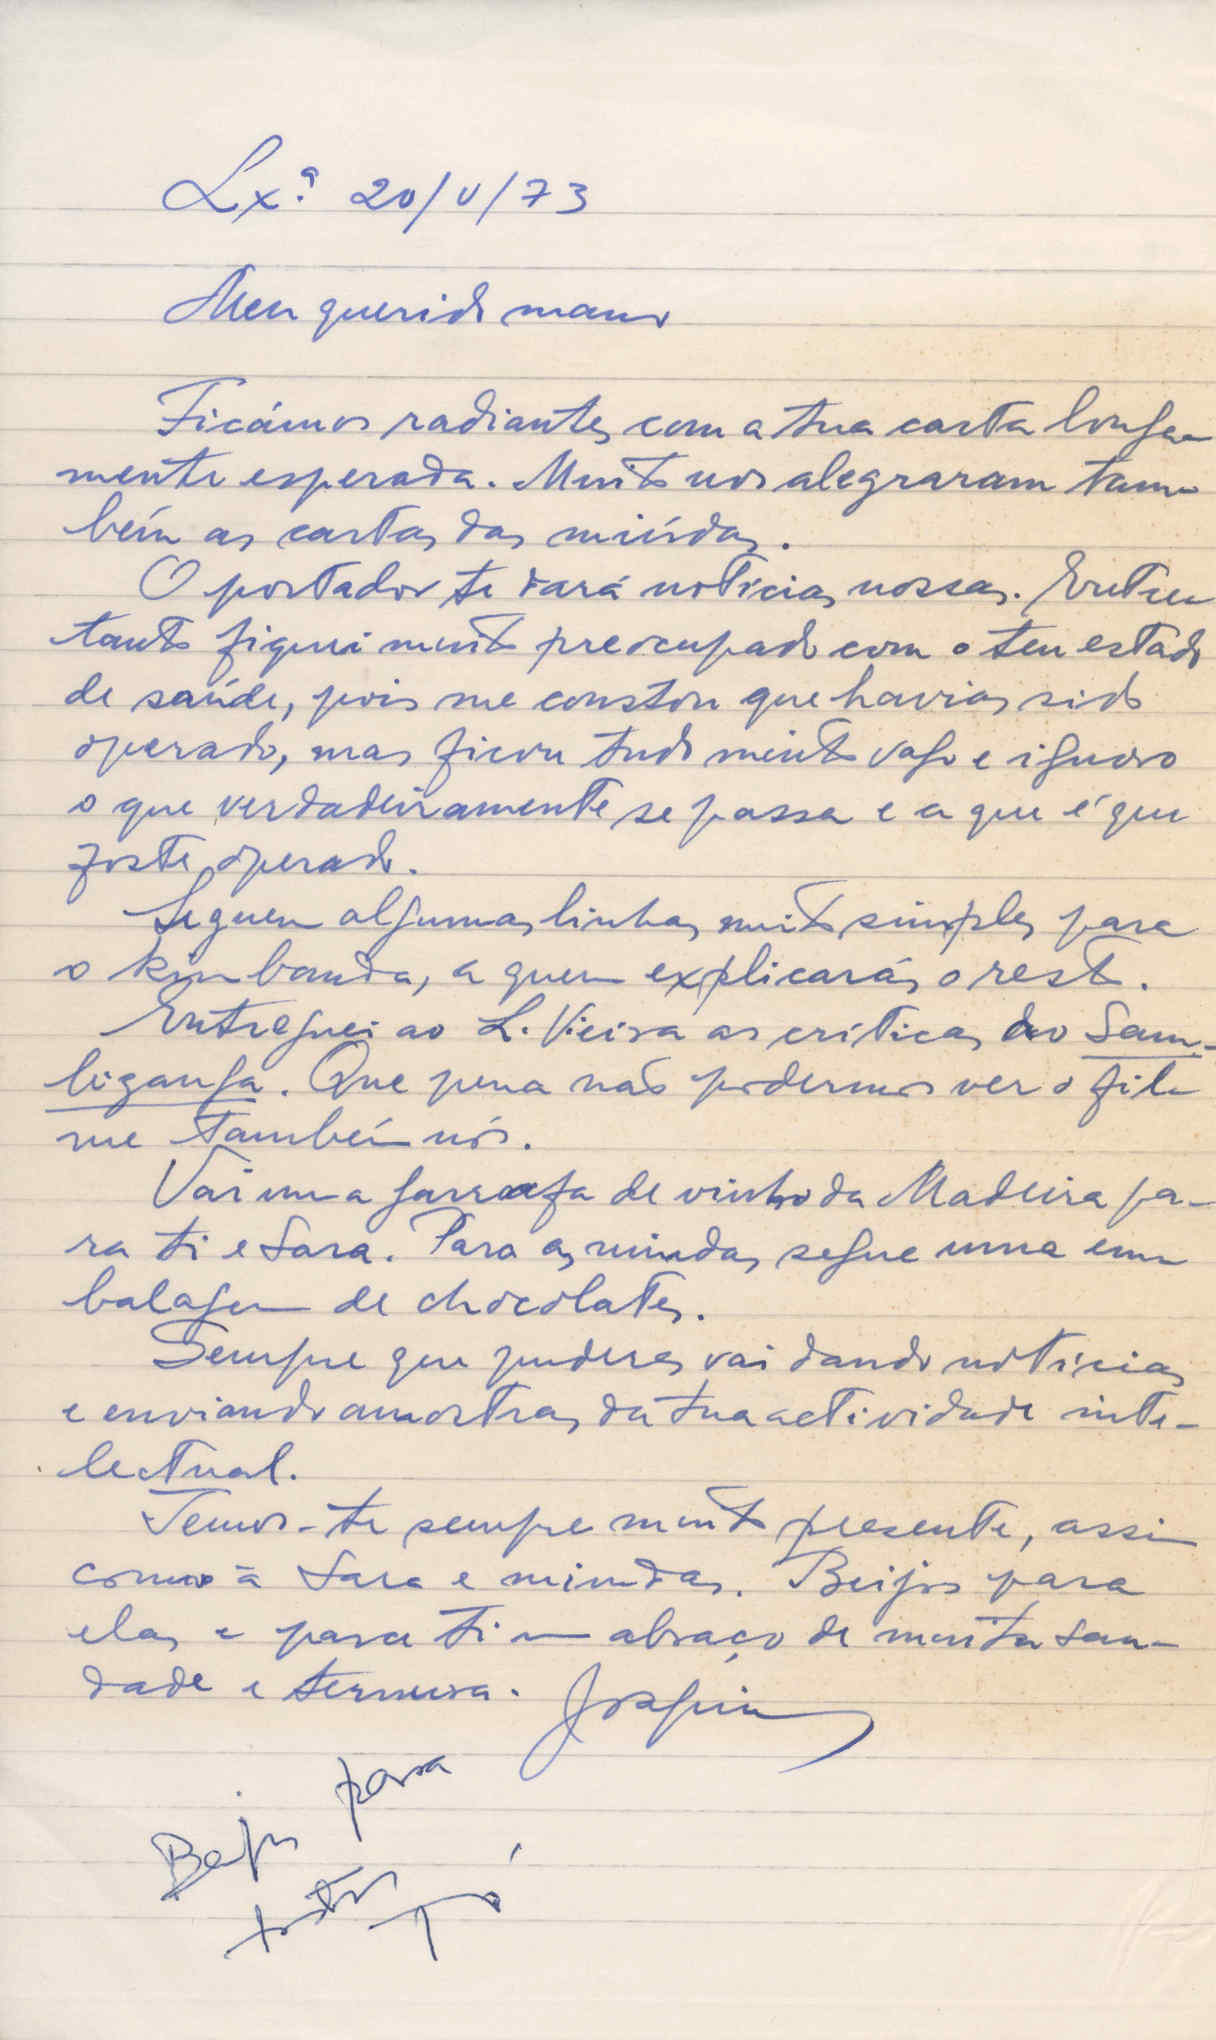 Lxª. 20/V/73
Meu querido mano
Ficámos radiantes com a tua carta longa-
mente esperada. Muito nos alegraram tam-
bém as cartas das miúdas.
O portador te dará notícias nossas. Entre
tanto fiquei muito preocupado com o teu estado
de saúde, pois me constou que havias sido
operado, mas ficou tudo muito vago e ignoro
o que verdadeiramente se passa e a que é que
foste operado.
Seguem algumas linhas muito simples para
o kimbanda, a quem explicarás o resto.
Entreguei ao L. Vieira as críticas do Sam-
bizanga. Que pena não podermos ver o fil-
me também nós.
Vai uma garrafa de vinho da Madeira pa-
ra ti e Sara. Para as miudas segue uma em
balagem de chocolates.
Sempre que puderes vai dando notícias
e enviando amostras da tua actividade inte-
lectual.
Temos-te sempre muito presente, assim
como à Sara e miudas. Beijos para
elas e para ti um abraço de muita sau-
dade e ternura. Joaquim
Beijos para
todos